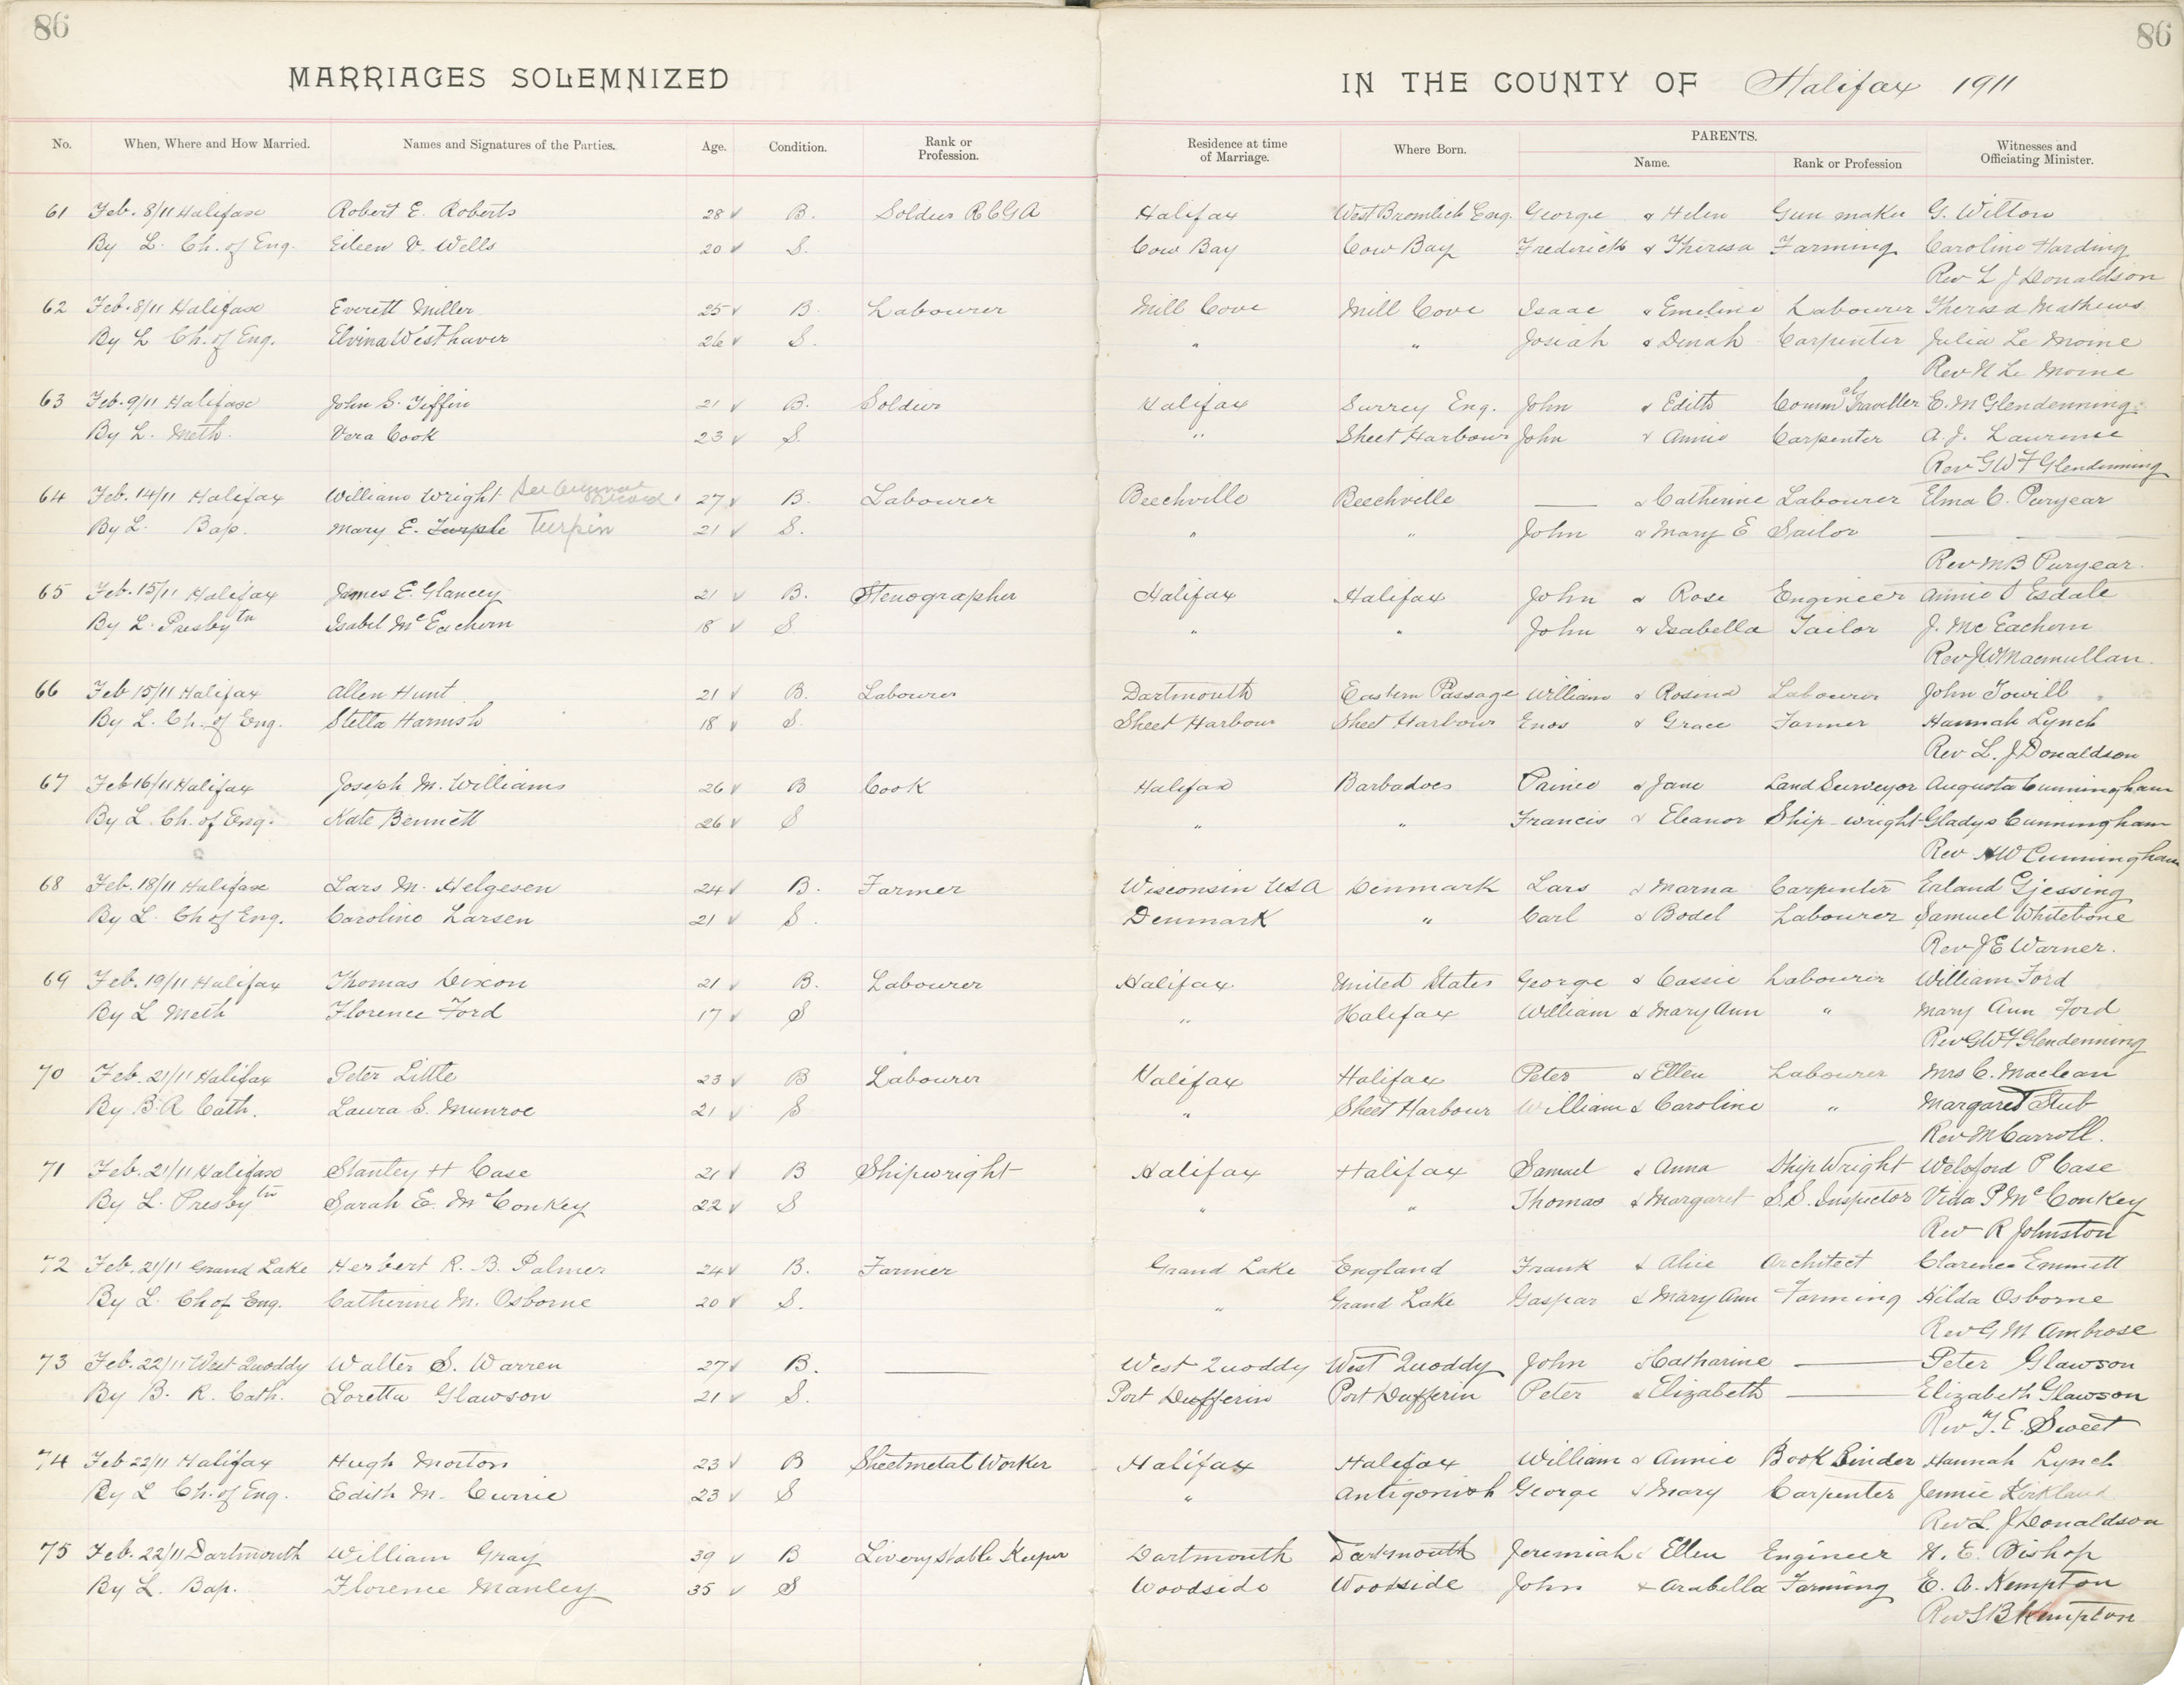 86 86
MARRIAGES SOLEMNIZED IN THE COUNTY OF Halifax 1911
No. When, Where and How Married. Names and Signatures of the Parties. Age. Condition. Rank or Profession. Residence at time of Marriage. Where Born. PARENTS. Name. Rank or Profession Witnesses and Officiating Minister.
61 Feb. 8/11 Halifax Robert E. Roberts 28 B. Soldier R C G A Halifax West Bromlich Eng. George & Helen Gun maker G. Wilton
By L. Ch. of Eng. Eileen V. Wells 20 S. Cow Bay Cow Bay Frederick & Theresa Farming Caroline Harding
Rev L J Donaldson
62 Feb. 8/11 Halifax Everett Miller 25 B. Labourer Mill Cove Mill Cove Isaac & Emeline Labourer Theresa Mathews
By L Ch. of Eng. Elvina Westhaver 26 S. " " Josiah & Dinah Carpenter Julia Le Moine
Rev N Le Moine
63 Feb. 9/11 Halifax John S. Tiffin 21 B. Soldier Halifax Surrey Eng. John & Edith Comm cl Traveller E. M Glendenning
By L. Meth. Vera Cook 23 S. " Sheet Harbour John & Annie Carpenter A. J. Laurence
Rev G W F Glendenning
64 Feb. 14/11 Halifax William Wright See original record 27 B. Labourer Beechville Beechville — & Catherine Labourer Elma C. Puryear
By L. Bap. Mary E. Turple Turpin 21 S. " " John & Mary E Sailor —
Rev M B Puryear.
65 Feb. 15/11 Halifax James E. Glancey 21 B. Stenographer Halifax Halifax John & Rose Engineer Annie Esdale
By L. Presbytn Isabel McEachern 18 S " " John & Isabella Tailor J. McEachern
Rev J W Macmullan.
66 Feb 15/11 Halifax Allen Hunt 21 B. Labourer Dartmouth Eastern Passage William & Rosina Labourer John Towill
By L. Ch. of Eng. Stella Harnish 18 S. Sheet Harbour Sheet Harbour Enos & Grace Farmer Hannah Lynch
Rev L. J Donaldson
67 Feb 16/11 Halifax Joseph M. Williams 26 B Cook Halifax Barbadoes Prince & Jane Land Surveyor Augusta Cunningham
By L. Ch. of Eng. Kate Bennett 26 S " " Francis & Eleanor Ship-wright Gladys Cunningham
Rev H W Cunningham
68 Feb. 18/11 Halifax Lars M. Helgesen 24 B. Farmer Wisconsin U S A Denmark Lars & Marna Carpenter Erland Gjessing
By L. Ch of Eng. Caroline Larsen 21 S. Denmark " Carl & Bodel Labourer Samuel Whitebone
Rev J E Warner.
69 Feb. 19/11 Halifax Thomas Dixon 21 B. Labourer Halifax United States George & Cassie Labourer William Ford
By L Meth Florence Ford 17 S " Halifax William & Mary Ann " Mary Ann Ford
Rev G W F Glendenning
70 Feb. 21/11 Halifax Peter Little 23 B Labourer Halifax Halifax Peter & Ellen Labourer Mrs C. Maclean
By B. R Cath. Laura S. Munroe 21 S " Sheet Harbour William & Caroline " Margaret Stub
Rev M Carroll.
71 Feb. 21/11 Halifax Stanley H Case 21 B Shipwright Halifax Halifax Samuel & Anna Ship Wright Welsford P Case
By L. Presbytn Sarah E. McConkey 22 S " " Thomas & Margaret S.S. Inspector Vida P McConkey
Rev R Johnston
72 Feb. 21/11 Grand Lake Herbert R. B. Palmer 24 B. Farmer Grand Lake England Frank & Alice Architect Clarence Emmett
By L. Ch of Eng. Catherine M. Osborne 20 S. " Grand Lake Gaspar & Mary Ann Farming Hilda Osborne
Rev G M Ambrose
73 Feb. 22/11 West Quoddy Walter S. Warren 27 B. — West Quoddy West Quoddy John & Catharine — Peter Glawson
By B. R. Cath. Loretta Glawson 21 S. Port Dufferin Port Dufferin Peter & Elizabeth — Elizabeth Glawson
Rev T. E. Sweet
74 Feb 22/11 Halifax Hugh Morton 23 B Sheetmetal Worker Halifax Halifax William & Annie Book Binder Hannah Lynch
By L Ch. of Eng. Edith M. Currie 23 S " Antigonish George & Mary Carpenter Jennie Kirkland
Rev L. J Donaldson
75 Feb. 22/11 Dartmouth William Gray 39 B Livery Stable Keeper Dartmouth Dartmouth Jeremiah & Ellen Engineer N. E. Bishop
By L. Bap. Florence Manley 35 S Woodside Woodside John & Arabella Farming E. A. Kempton
Rev S B Kempton